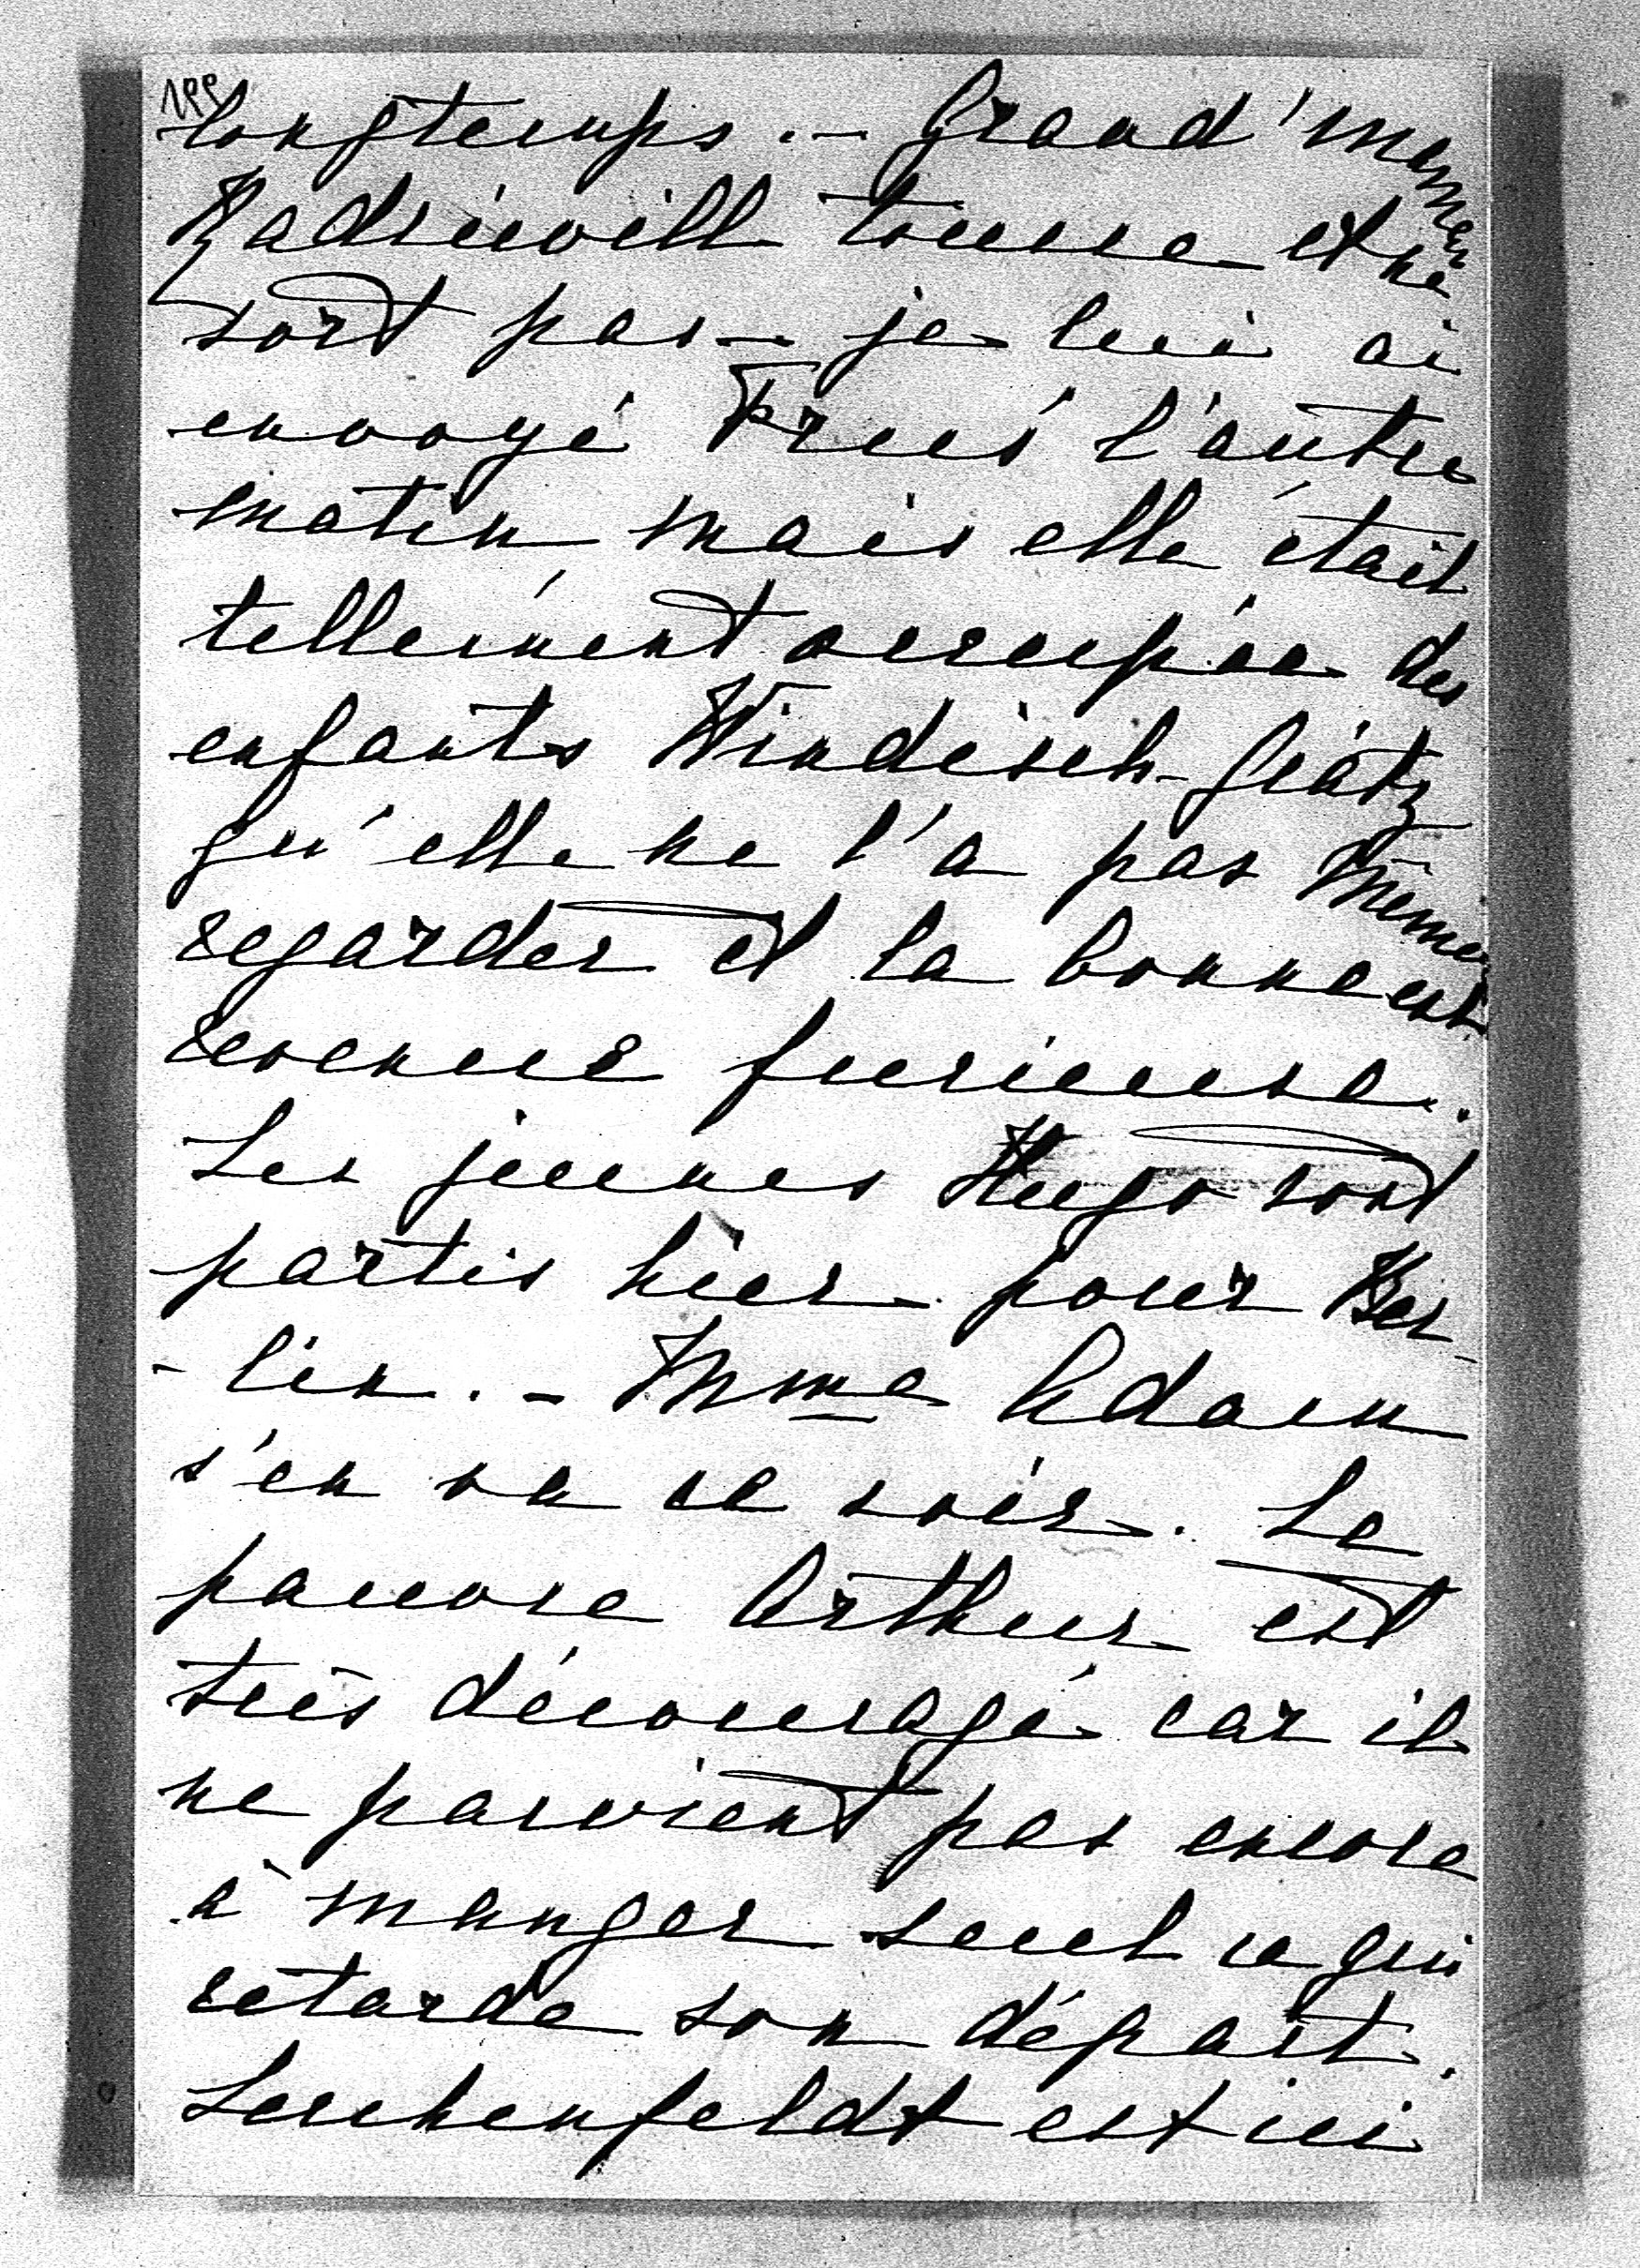 199
longtemps. – Grand'maman
Radziwill tousse et ne
sort pas – je lui ai
envoyé l'autre
matin mais elle était
tellement occupée des
enfants Windisch-Grätz
qu'elle ne l'a pas même
regarder et la bonne est
revenue furieuse.
Les jeunes Hugo sont
partis hier pour Ber-
-lin. – Mme Adam
s'en va ce soir. Le
pauvre Arthur est
très découragé car il
ne parvient pas encore
à manger seul ce qui
retarde son départ.
Lerchenfeldt est ici